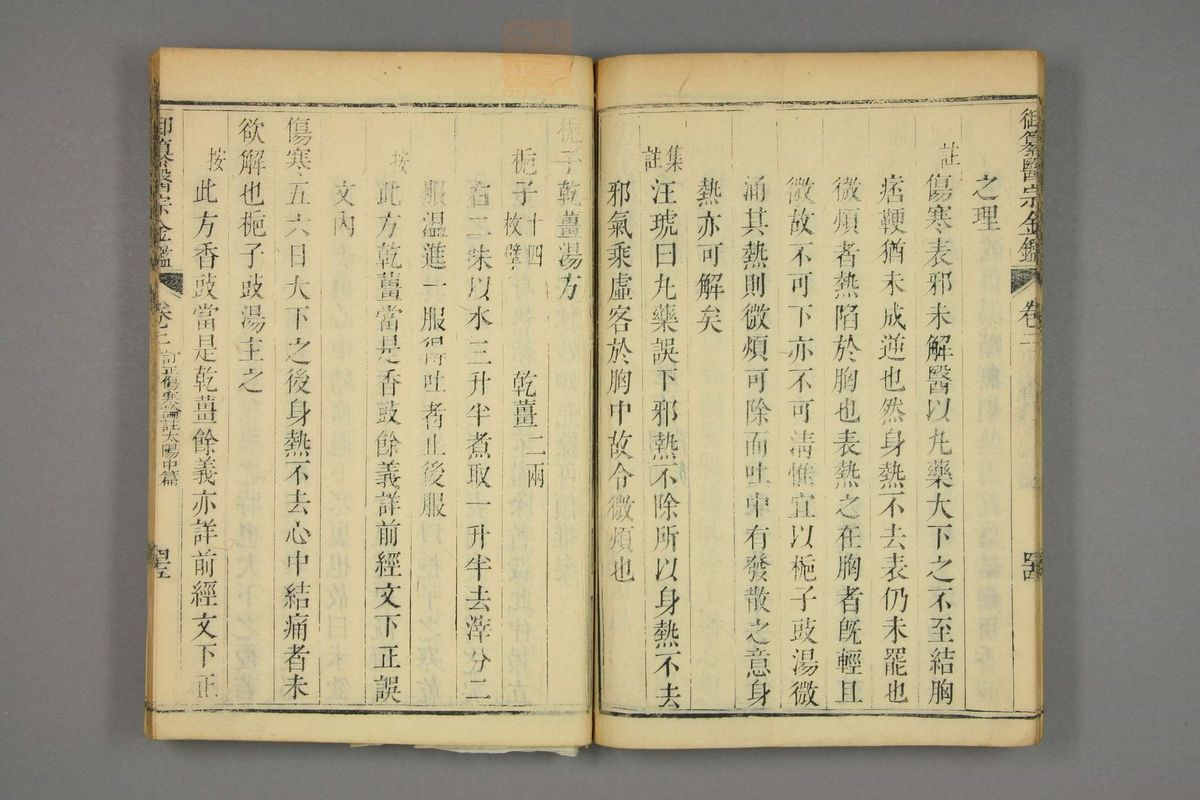 御纂醫宗金鑑 卷二 四四
之理
註
傷寒表邪未解醫以丸藥大下之不至結胸
痞鞕猶未成逆也然身熱不去表仍未罷也
微煩者熱陷於胸也表熱之在胸者既輕且
微故不可下亦不可清惟宜以梔子豉湯微
涌其熱則微煩可除而吐中有發散之意身
熱亦可解矣
集註
汪琥曰丸藥誤下邪熱不除所以身熱不去
邪氣乘虛客於胸中故令微煩也
梔子乾薑湯方
梔子十四枚擘 乾薑二兩
右二味以水三升半煮取一升半去滓分二
服溫進一服得吐者止後服
按
此方乾薑當是香豉餘義詳前經文下正誤
文內
傷寒五六日大下之後身熱不去心中結痛者未
欲解也梔子豉湯主之
按
此方香豉當是乾薑餘義亦詳前經文下正
御纂醫宗金鑑 卷二 訂正傷寒論註太陽中篇 四五